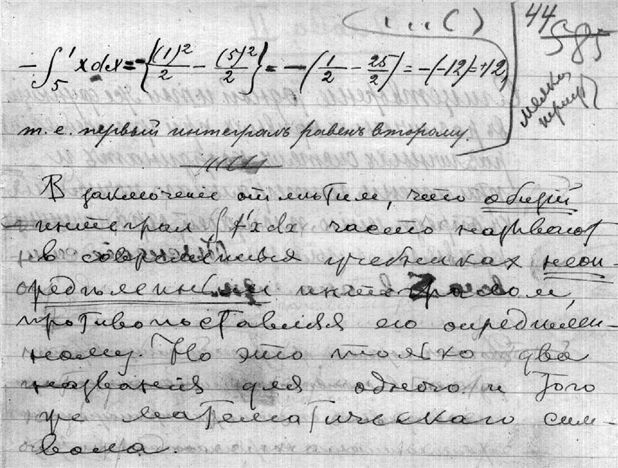 (...()
44
585
- ∫₅¹ xdx = -{(1)²/2 - (5)²/2} = -(1/2 - 25/2) = -(-12) = +12,
мелких
т. е. первый интегралъ равенъ второму.
В заключение отметим, что общий
интеграл ∫f'xdx часто называют
в современных учебниках неоп-
ределенным интегралом,
противопоставляя его определен-
ному. Но это только два
названия для одного и того
же математическаго сим-
вола.